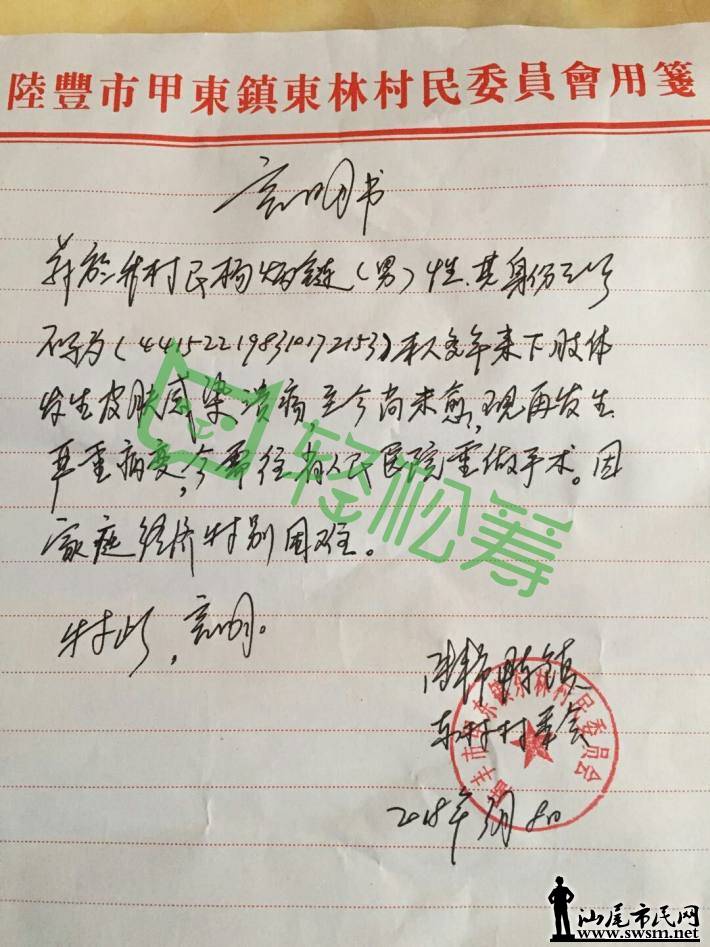 陸豐市甲東鎮東林村民委員會用箋
言明书
兹於我村民杨炳链（男）性，其身份证号
码为（441522198310172153）本人多年来下肢体
发生皮肤感染溃疡，至今尚未愈，现再发生
严重病变，今需往省人民医院重做手术。因
家庭经济特别困难。
特此，言明。
陆丰市甲东镇
东林村村委会
2018年 月8日
陆丰市甲东鎮东林村民委员会
轻松筹
汕尾市民网
www.swsm.net